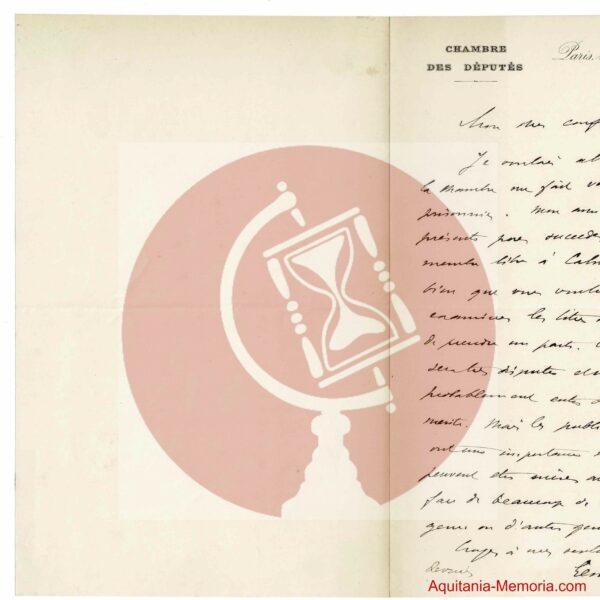 CHAMBRE
DES DÉPUTÉS
Paris,
Mon cher conf
Je voulais al
la chambre me fait
prisonnier. Mon am
présents pour succéder
membre libre à
bien que vous voul
examiner les titres
de prendre un parti.
sera très disputée et
probablement entre
mérite. Mais les publi
ont une importance
peuvent être mises au
fait de beaucoup de
genre ou d'autres gen
Croyez à mes sent
dévoués
Aquitania-Memoria.com